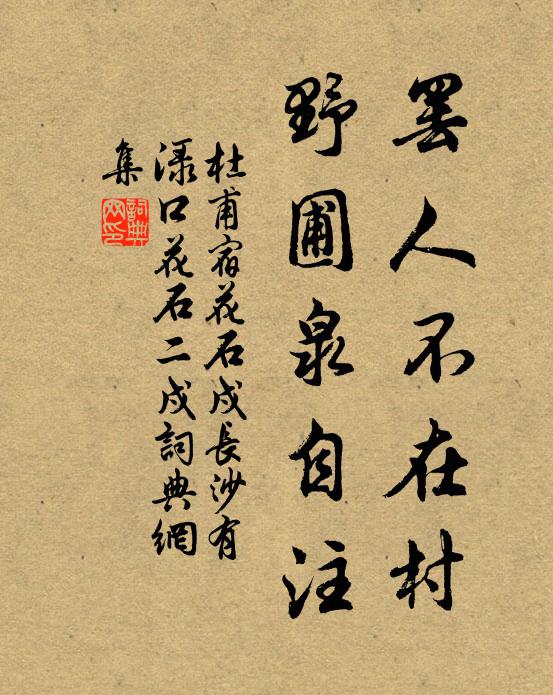 罢人不在村
野圃泉自注
杜甫宿花石戍長沙有
渌口花石二戍詞典網
集
詞典網印